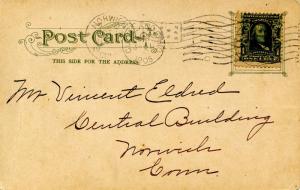 NORWICH
Post Card.
THIS SIDE FOR THE ADDRESS.
Mr Vincent Eldred
Central Building
Norwich
Conn.